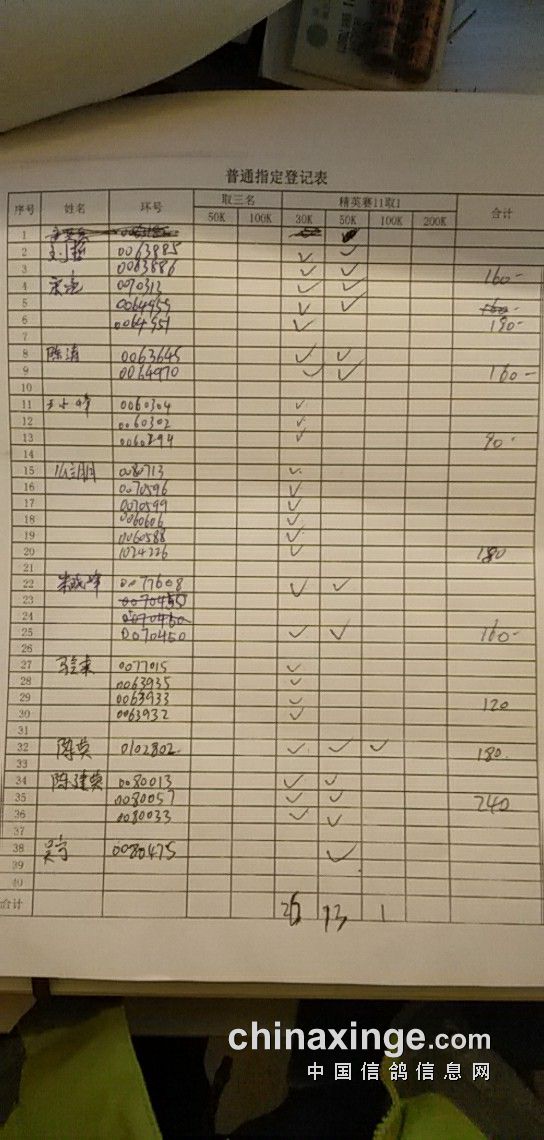 普通指定登记表
序号 姓名 环号 取三名 精英赛11取1 合计
50K 100K 30K 50K 100K 200K
1
2 0063885 ✓ ✓
3 0063886 ✓ ✓ 160-
4 0070313 ✓ ✓
5 0064955 ✓ ✓
6 0064551 ✓ 190-
7
8 陈涛 0063645 ✓ ✓
9 0064970 ✓ ✓ 160-
10
11 0060304 ✓
12 0060302 ✓
13 0060894 ✓ 90-
14
15 0080713 ✓
16 0070596 ✓
17 0070599 ✓
18 0060606 ✓
19 0060588 ✓
20 1024226 ✓ 180
21
22 0077608 ✓ ✓
23 0070455
24 0070460
25 0070450 ✓ ✓ 160-
26
27 0077015 ✓
28 0063935 ✓
29 0063933 ✓
30 0063932 ✓ 120
31
32 陈英 0102802 ✓ ✓ ✓ 180.
33
34 陈建英 0080013 ✓ ✓
35 0080057 ✓ ✓ 240
36 0080033 ✓ ✓
37
38 吴宁 0080475 ✓
39
40
合计 26 13 1
chinaxinge.com
中国信鸽信息网